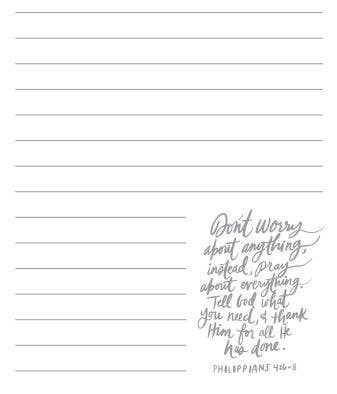 Don't Worry
about anything,
instead, pray
about everything.
Tell God what
you need, & thank
Him for all He
has done.
PHILIPPIANS 4:6-8